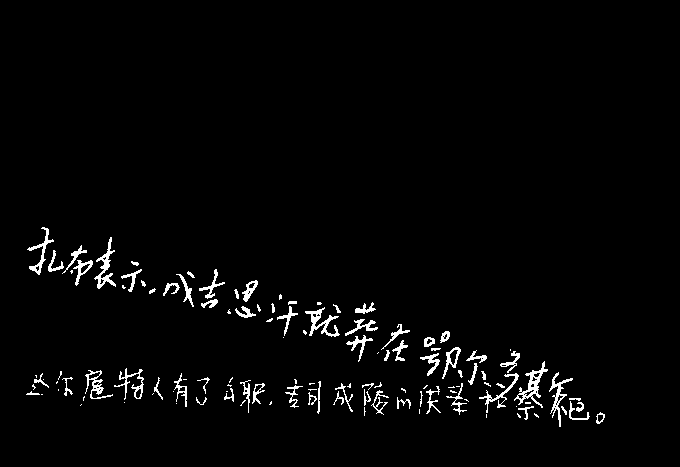 扎布表示,成吉思汗就葬在鄂尔多
达尔扈特人有了职,专司成陵的供奉和祭祀。